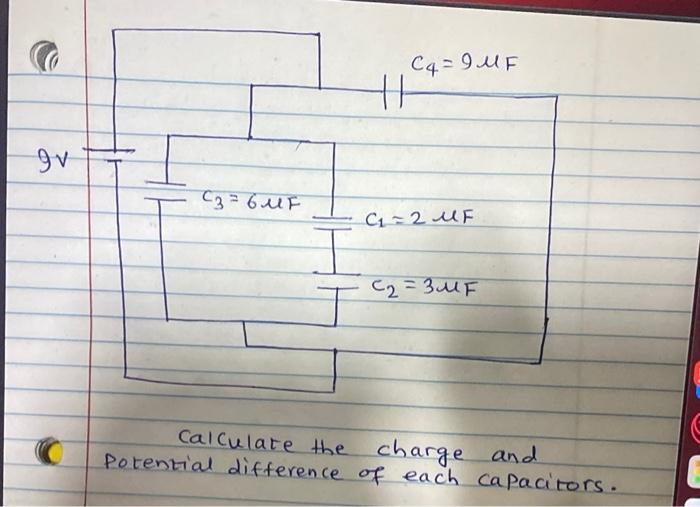 C4 = 9 μF
9V
C3 = 6 μF
C1 = 2 μF
C2 = 3 μF
Calculate the charge and
Potential difference of each capacitors.